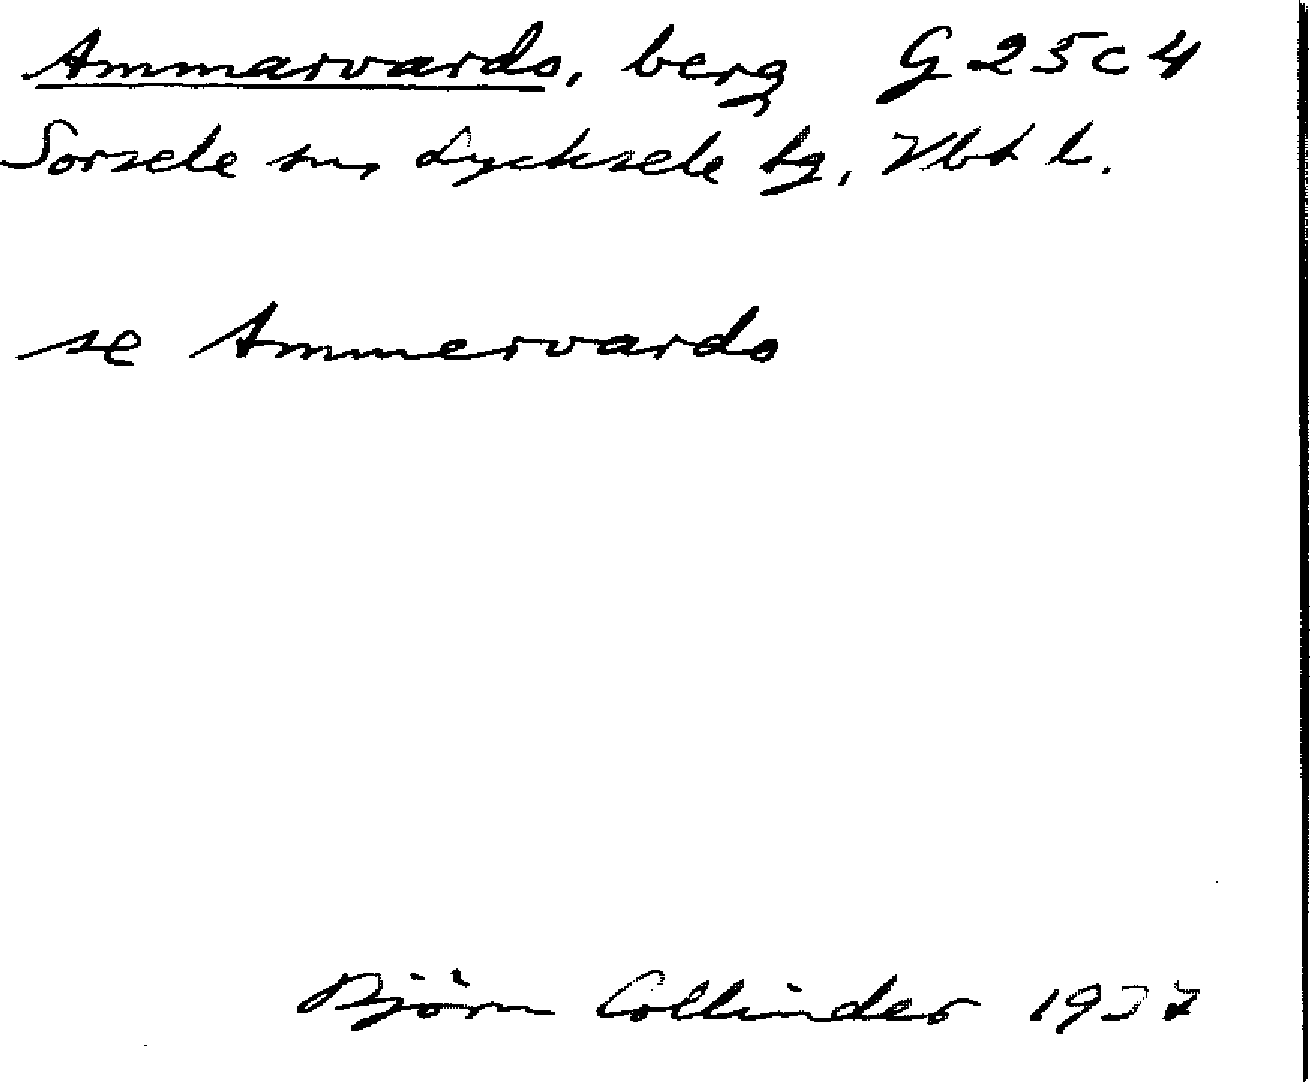 Ammarvardo, berg G 25 c 4
Sorsele sn, Lycksele tg, Vbt l.
se Ammervardo
Björn Collinder 1937